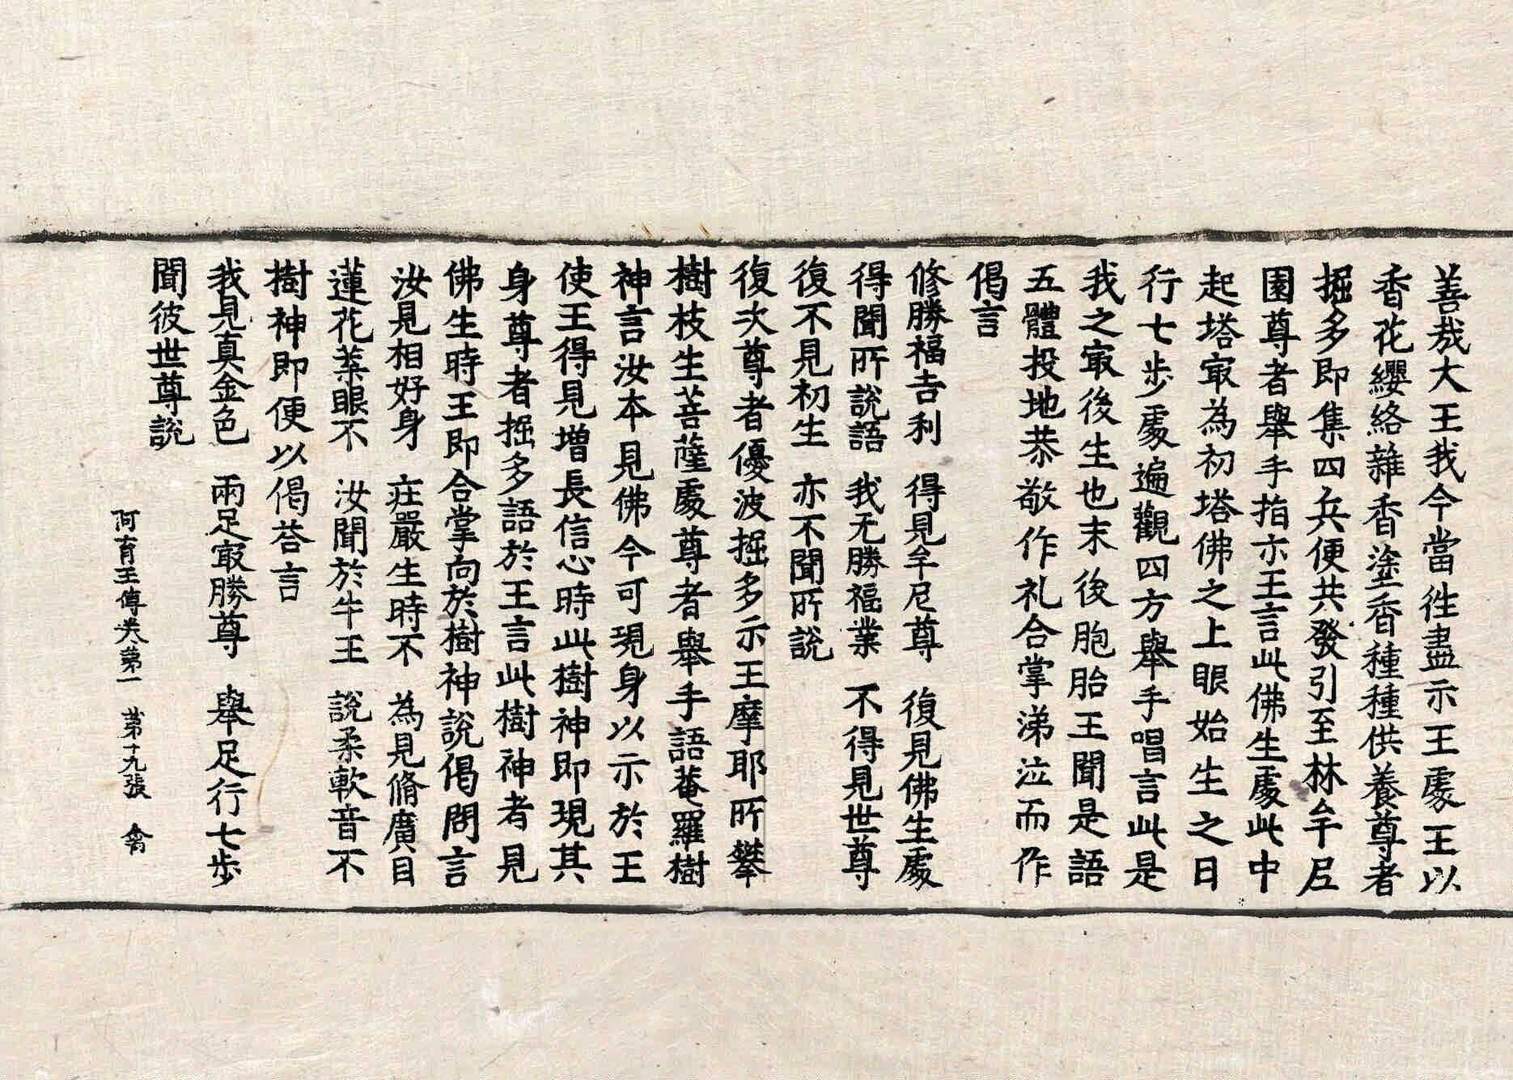 善哉大王我今當徃盡示王處王以
香花纓絡雜香塗香種種供養尊者
掘多即集四兵便共發引至林牟尼
園尊者舉手指示王言此佛生處此中
起塔㝡為初塔佛之上眼始生之日
行七步處遍觀四方舉手唱言此是
我之㝡後生也末後胞胎王聞是語
五體投地恭敬作礼合掌涕泣而作
偈言
修勝福吉利　得見牟尼尊　復見佛生處
得聞所說語　我无勝福業　不得見世尊
復不見初生　亦不聞所說
復次尊者優波掘多示王摩耶所攀
樹枝生菩薩處尊者舉手語菴羅樹
神言汝本見佛今可現身以示於王
使王得見增長信心時此樹神即現其
身尊者掘多語於王言此樹神者見
佛生時王即合掌向於樹神說偈問言
汝見相好身　莊嚴生時不　為見脩廣目
蓮花葉眼不　汝聞於牛王　說柔軟音不
樹神即便以偈荅言
我見真金色　兩足㝡勝尊　舉足行七步
聞彼世尊說
阿育王傳卷第一　第十九張　禽